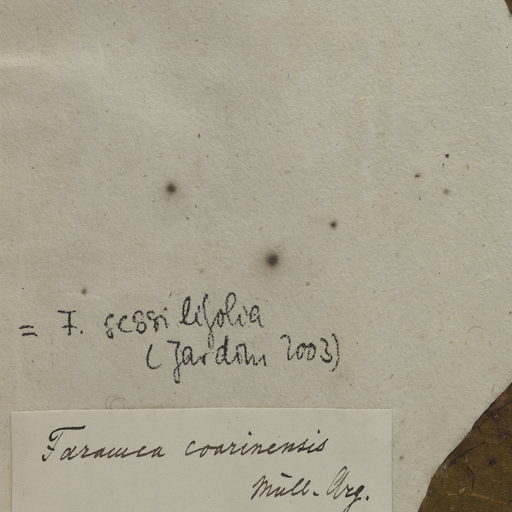 = F. sessilifolia
(Jardim 2003)
Faramea coarinensis
Müll-Arg.